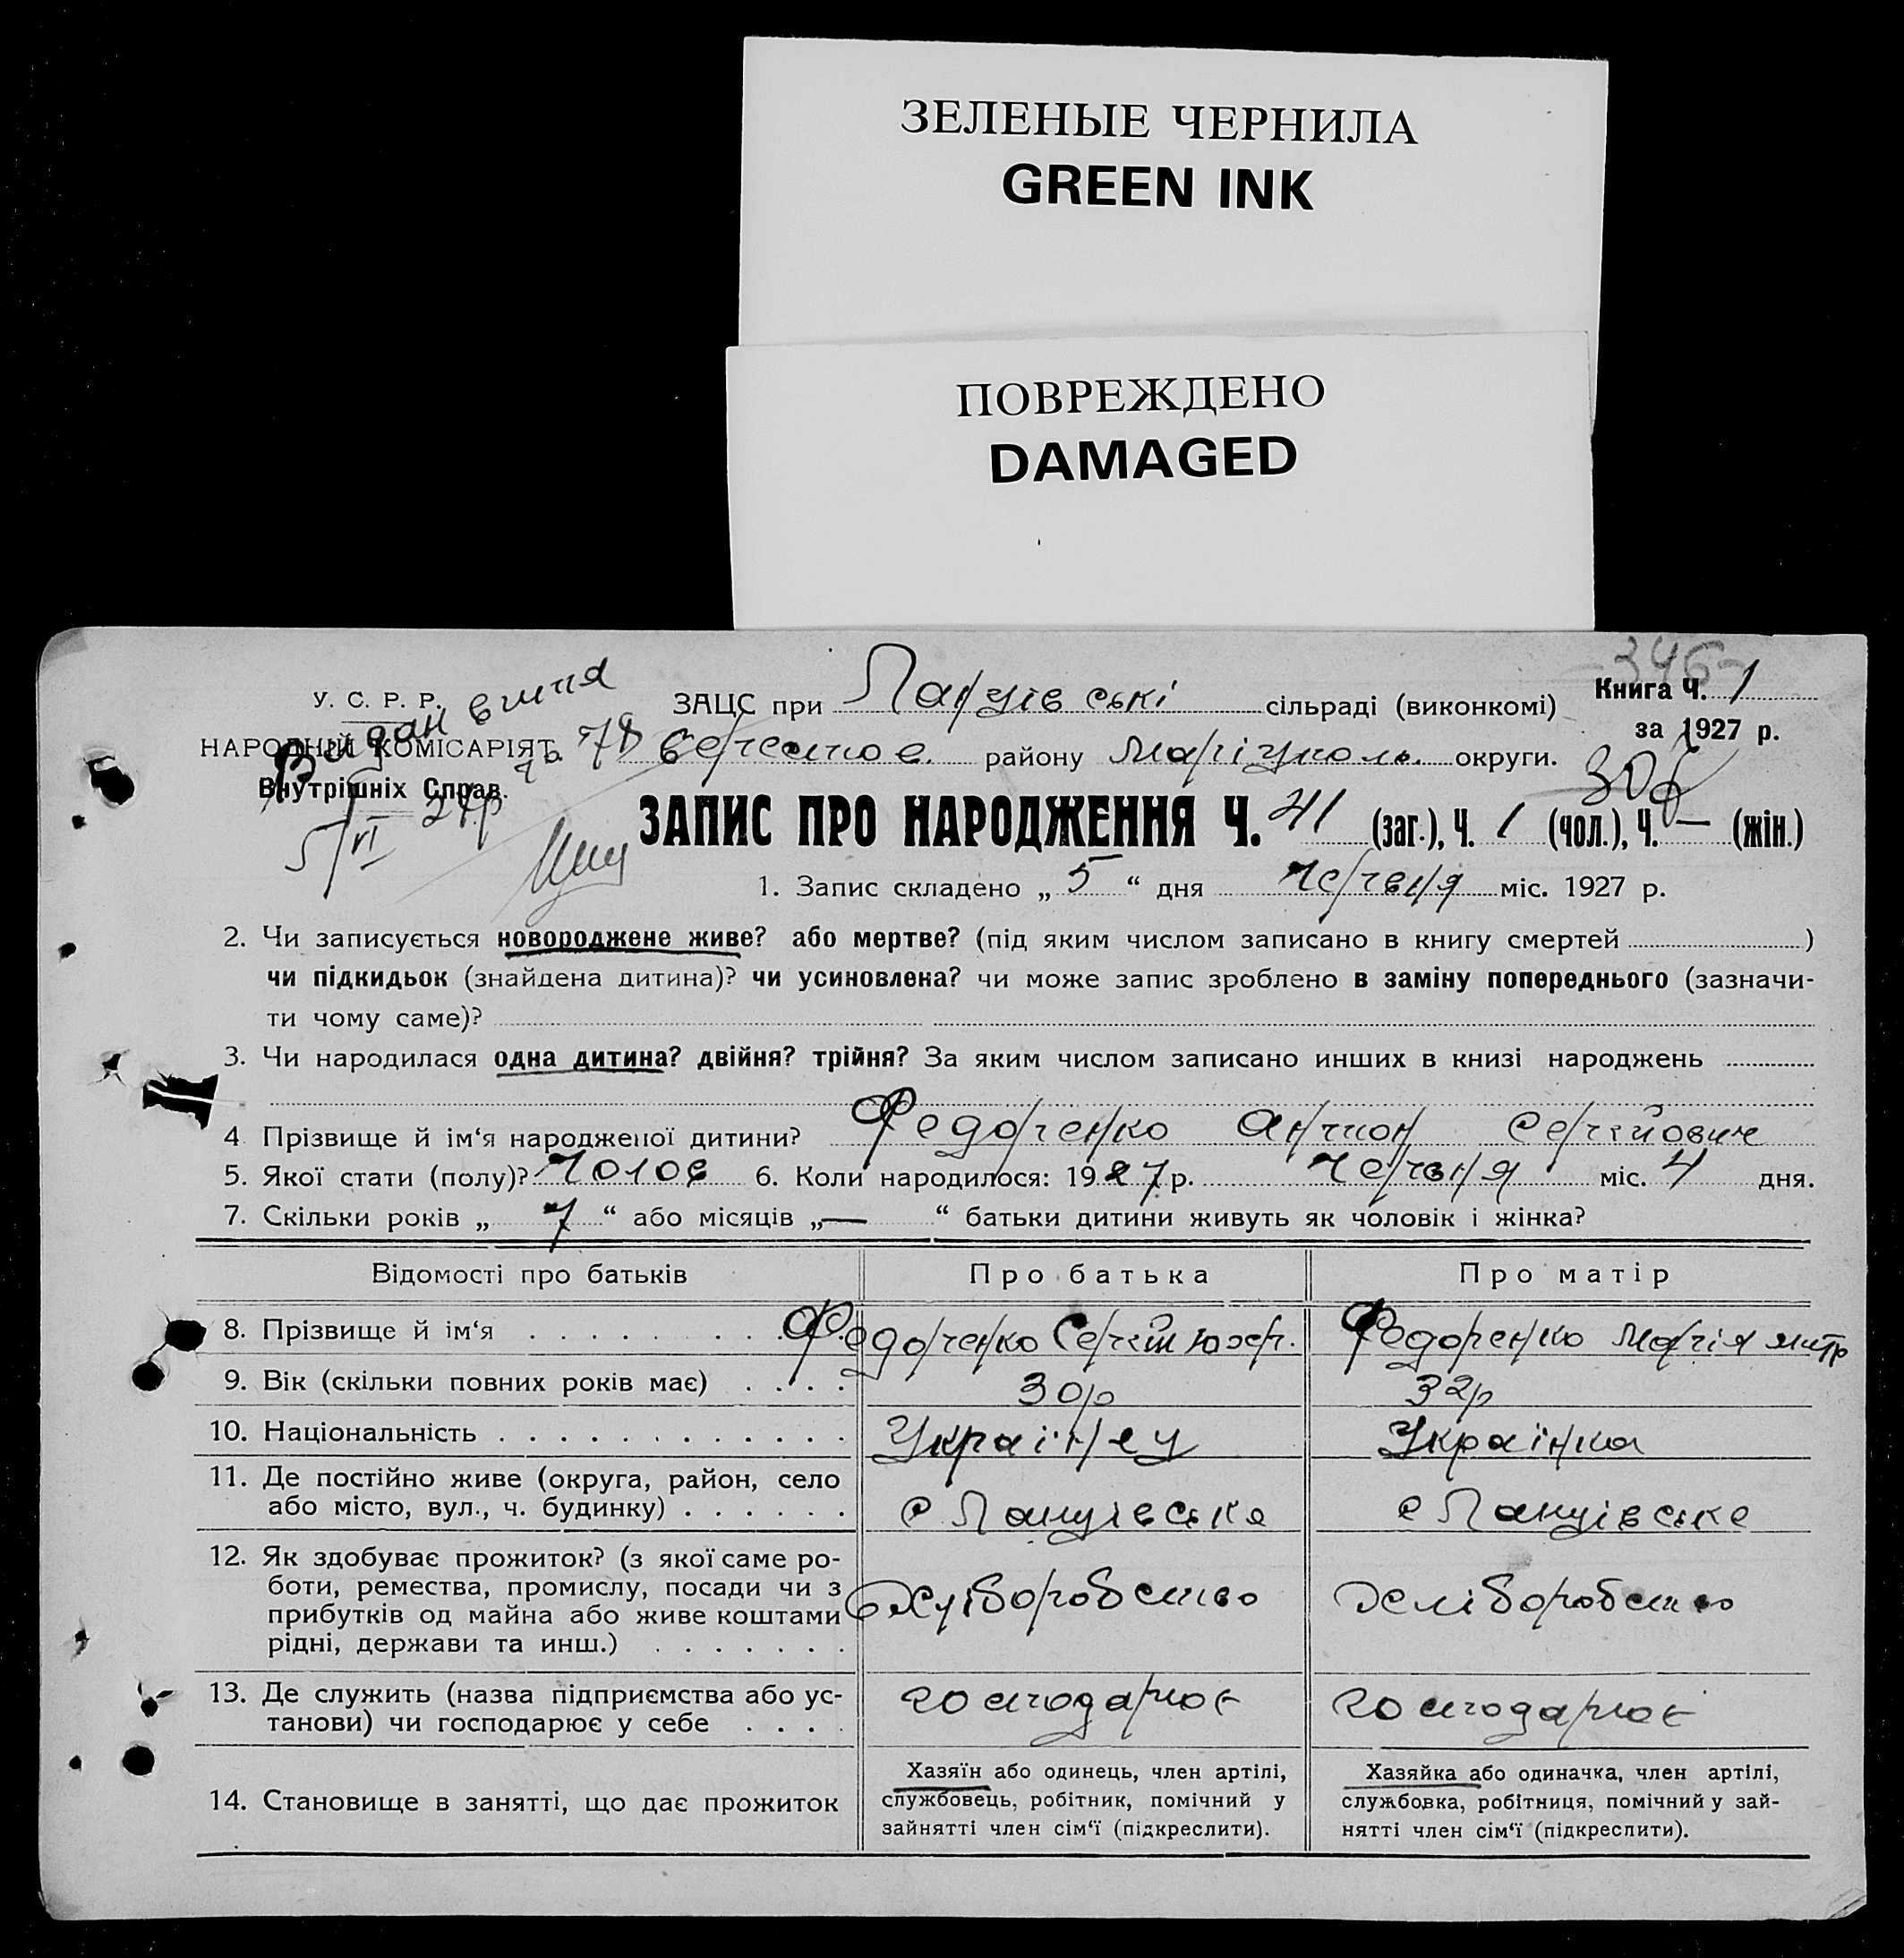 ЗЕЛЕНЫЕ ЧЕРНИЛА
GREEN INK
ПОВРЕЖДЕНО
DAMAGED
-346-
У. С. Р. Р.
НАРОДНІЙ КОМІСАРІЯТ
Внутрішніх Справ.
Видан витя
78
5/VI 27р
ЗАЦС при сільраді (виконкомі)
району Маріуполь. округи.
Книга Ч. 1
за 1927 р.
306
ЗАПИС ПРО НАРОДЖЕННЯ Ч. 41 (заг.), Ч. 1 (чол.), Ч. — (жін.)
1. Запис складено „ 5 “ дня Червня міс. 1927 р.
2. Чи записується новороджене живе? або мертве? (під яким числом записано в книгу смертей )
чи підкидьок (знайдена дитина)? чи усиновлена? чи може запис зроблено в заміну попереднього (зазначи-
ти чому саме)?
3. Чи народилася одна дитина? двійня? трійня? За яким числом записано инших в книзі народжень
4 Прізвище й ім‘я народженої дитини? Федоренко Антон Сергійович
5. Якої стати (полу)? Чолов 6. Коли народилося: 1927 р. Червня міс. 4 дня.
7. Скільки років „ 7 “ або місяців „ — “ батьки дитини живуть як чоловік і жінка?
Відомості про батьків Про батька Про матір
8. Прізвище й ім‘я Федоренко Сергій Федоренко Марія митр
9. Вік (скільки повних років має) 30р 32р
10. Національність Українец Українка
11. Де постійно живе (округа, район, село
або місто, вул., ч. будинку) с с
12. Як здобуває прожиток? (з якої саме ро-
боти, ремества, промислу, посади чи з
прибутків од майна або живе коштами
рідні, держави та инш.) Хліборобство Хліборобство
13. Де служить (назва підприємства або ус-
танови) чи господарює у себе господарює господарює
14. Становище в занятті, що дає прожиток
Хазяїн або одинець, член артілі,
службовець, робітник, помічний у
зайнятті член сім‘ї (підкреслити).
Хазяйка або одиначка, член артілі,
службовка, робітниця, помічний у зай-
нятті член сім‘ї (підкреслити).